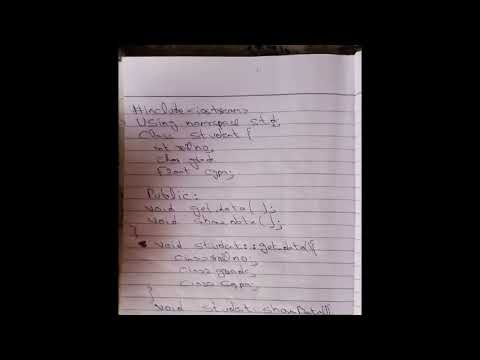 #include<iostream>
Using namespace std;
Class Student{
int rollno;
char grade
float cgpa;
Public:
void get data( );
void show data( );
}
void student::getdata(){
cin>>rollno;
cin>>grade;
cin>>cgpa;
}
void student showData(){